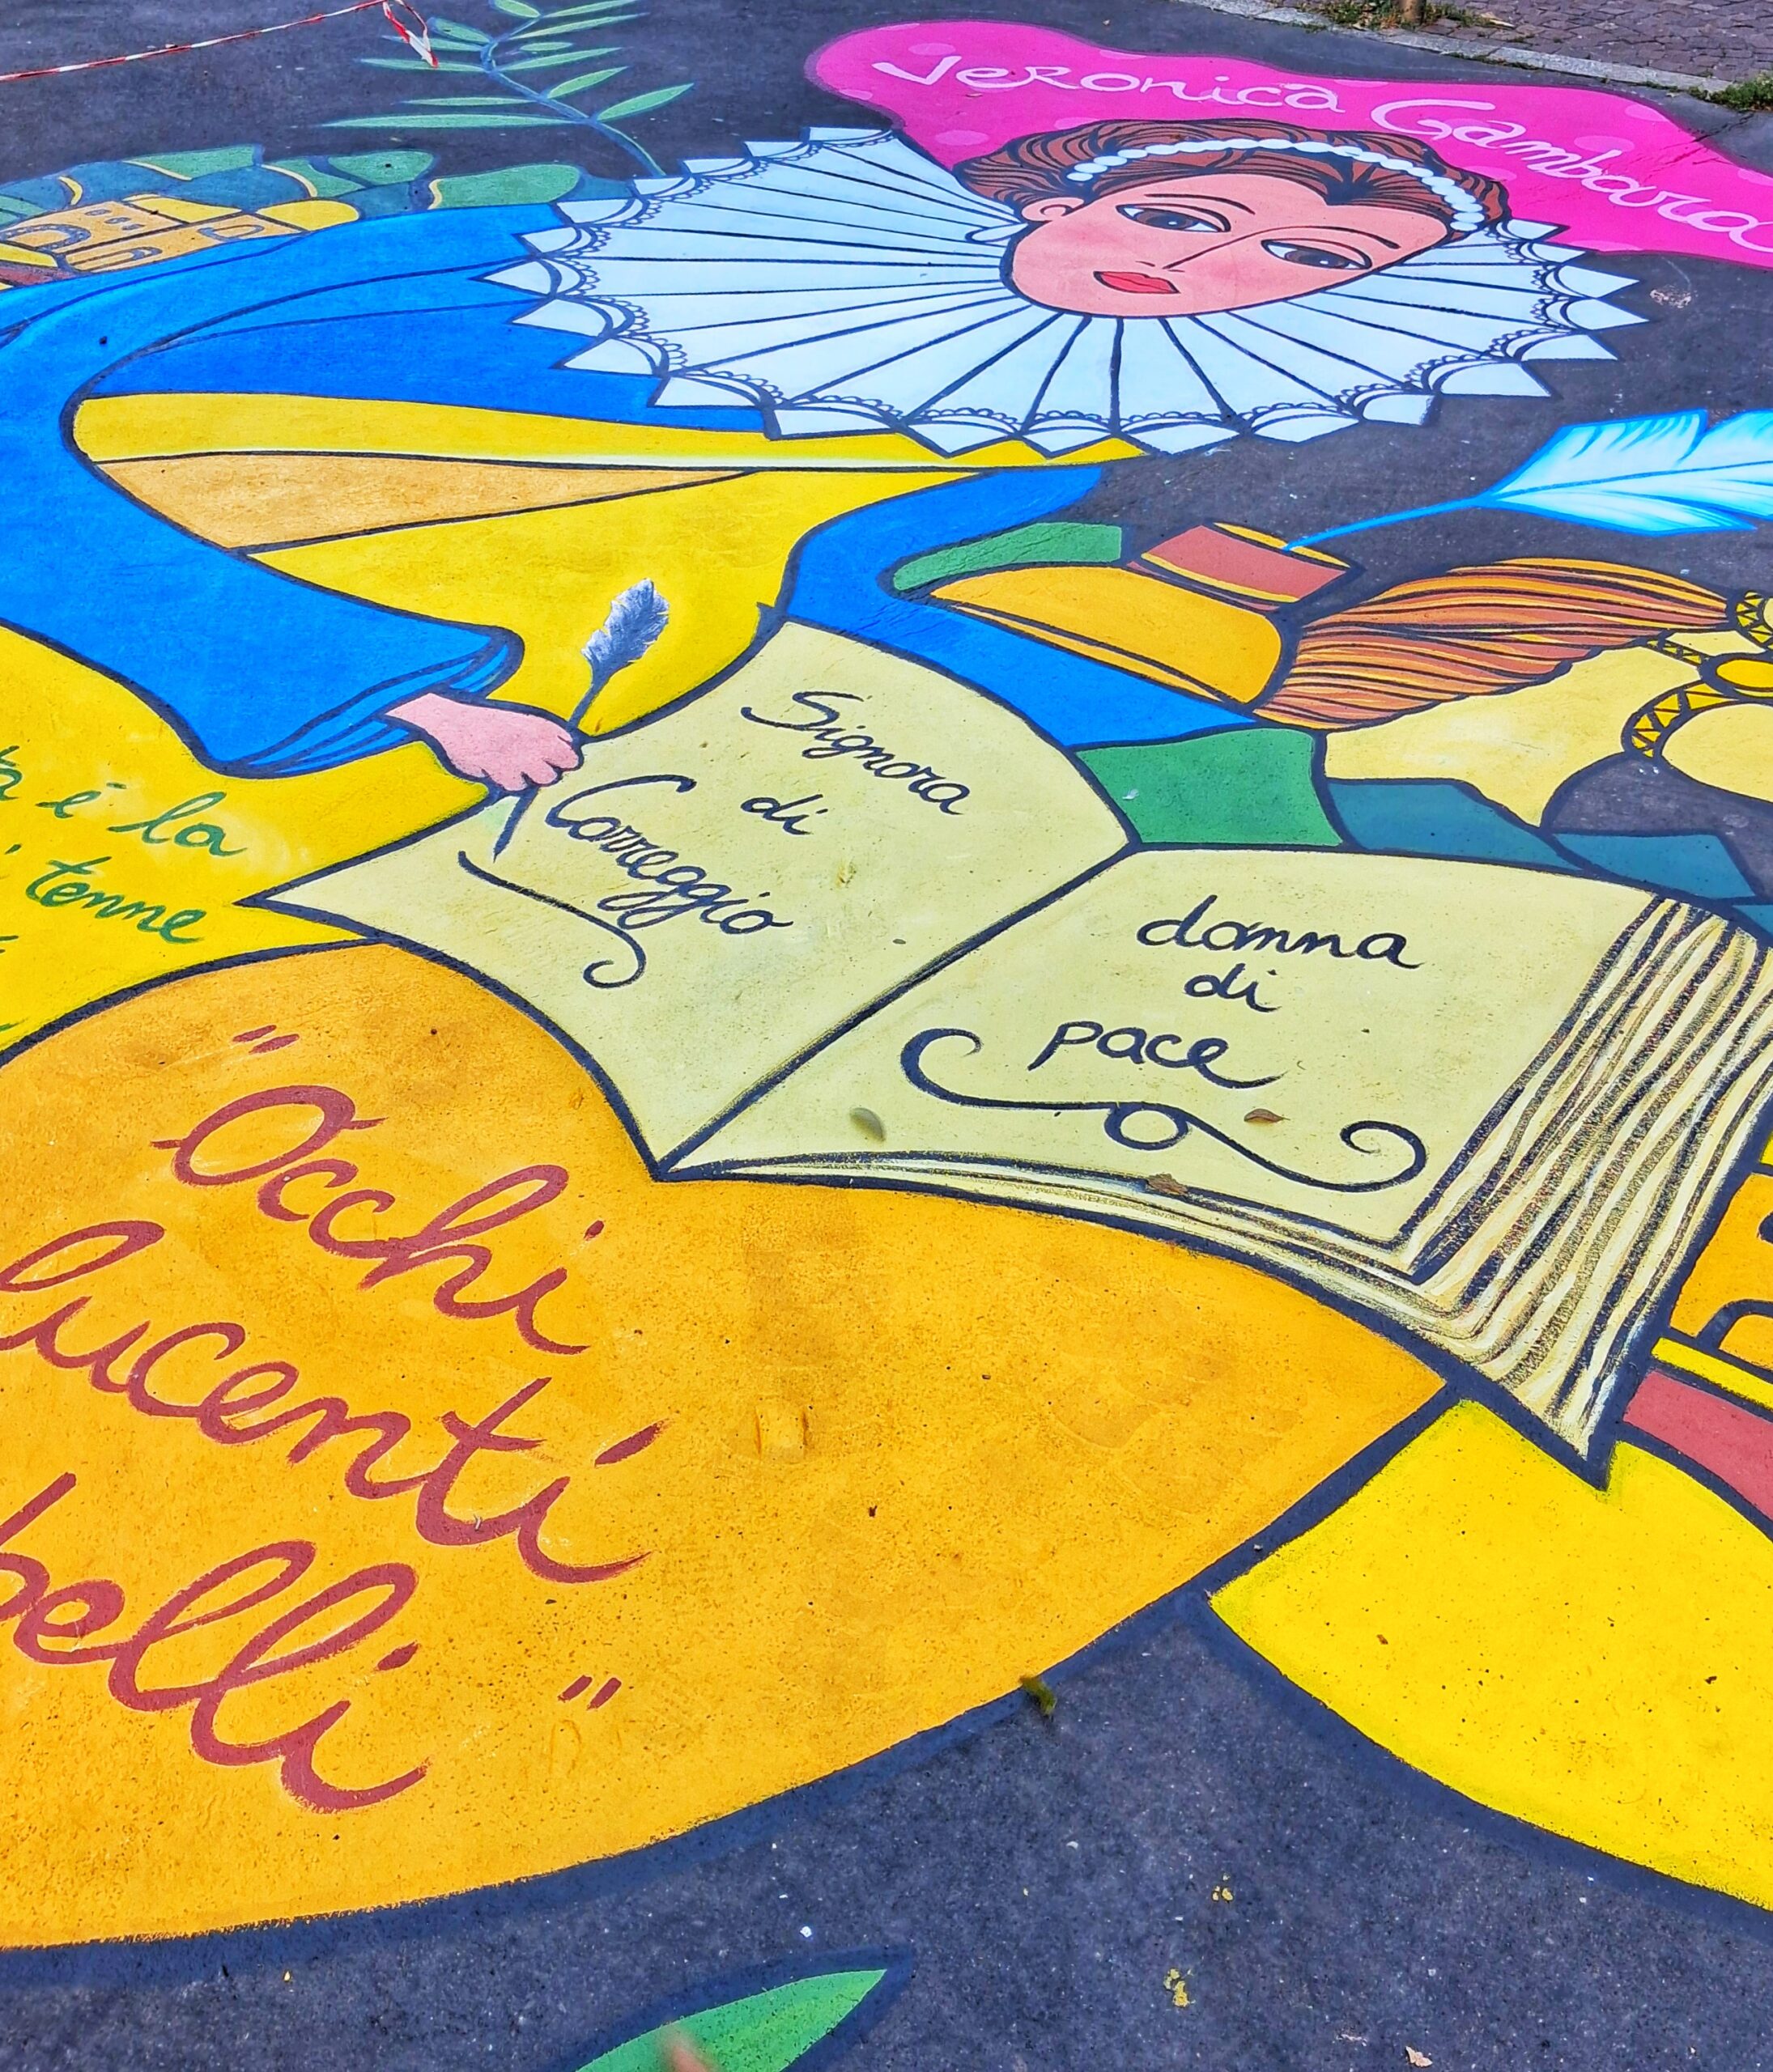 Veronica Gambara
Signora
di
Correggio
donna
di
pace
é la
tenne
"Occhi
lucenti
belli"